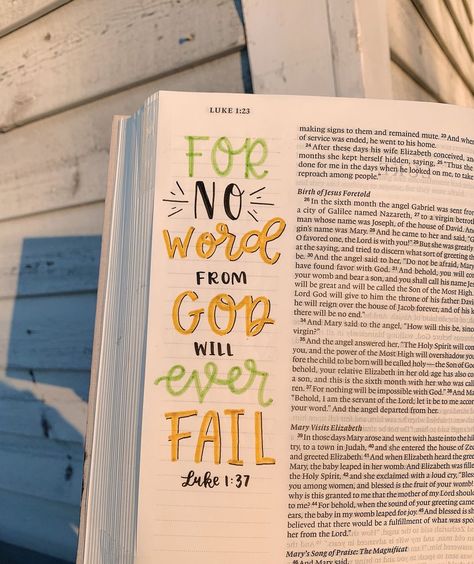 LUKE 1:23
FOR
NO
Word
FROM
GOD
WILL
ever
FAIL
Luke 1:37
making signs to them and remained mute. 23 And
of service was ended, he went to his home.
24 After these days his wife Elizabeth conceived, and
months she kept herself hidden, saying, 25 "Thus the
done for me in the days when he looked on me, to take
reproach among people."
Birth of Jesus Foretold
26 In the sixth month the angel Gabriel was sent from
a city of Galilee named Nazareth, 27 to a virgin betroth
man whose name was Joseph, of the house of David. And
gin's name was Mary. 28 And he came to her and said, "Gr
O favored one, the Lord is with you!" 29 But she was greatly
at the saying, and tried to discern what sort of greeting th
be. 30 And the angel said to her, "Do not be afraid, Mary
have found favor with God. 31 And behold, you will con
your womb and bear a son, and you shall call his name Jes
will be great and will be called the Son of the Most High.
Lord God will give to him the throne of his father Dav
he will reign over the house of Jacob forever, and of his
there will be no end."
34 And Mary said to the angel, "How will this be, sinc
virgin?"
35 And the angel answered her, "The Holy Spirit will
you, and the power of the Most High will overshadow you
fore the child to be born will be called holy—the Son of
behold, your relative Elizabeth in her old age has also co
a son, and this is the sixth month with her who was calle
ren. 37 For nothing will be impossible with God." 38 And Mar
"Behold, I am the servant of the Lord; let it be to me accor
your word." And the angel departed from her.
Mary Visits Elizabeth
39 In those days Mary arose and went with haste into the hill
try, to a town in Judah, 40 and she entered the house of Zec
and greeted Elizabeth. 41 And when Elizabeth heard the greet
Mary, the baby leaped in her womb. And Elizabeth was fill
the Holy Spirit, 42 and she exclaimed with a loud cry, "Bless
you among women, and blessed is the fruit of your womb!
why is this granted to me that the mother of my Lord should
to me? 44 For behold, when the sound of your greeting came
ears, the baby in my womb leaped for joy. 45 And blessed is sh
believed that there would be a fulfillment of what was spok
her from the Lord."
Mary's Song of Praise: The Magnificat
46 And Mary said,